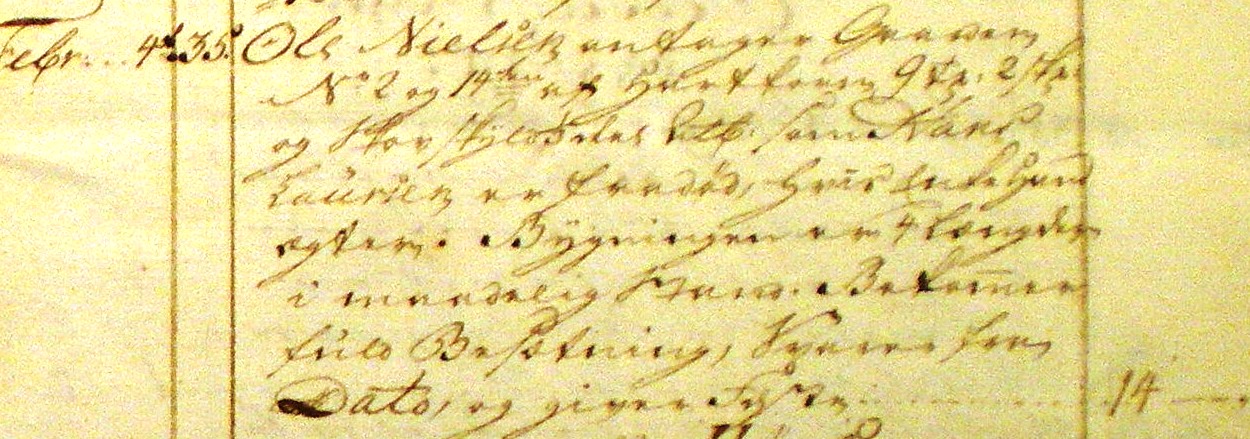 Febr: 4t. 35. Ole Nielsen antager Graven
No 2 og 14den af Hartkorn 9 tr: 2 skp:
og Skovskyld som Hans
Laursen er fradød, hvis Enke Hand
ægter. Bygningen er 4 Længder
i maadelig Stand. Bekommer
fuld Besætning, Svarer fra
Dato, og giver Fæste 14